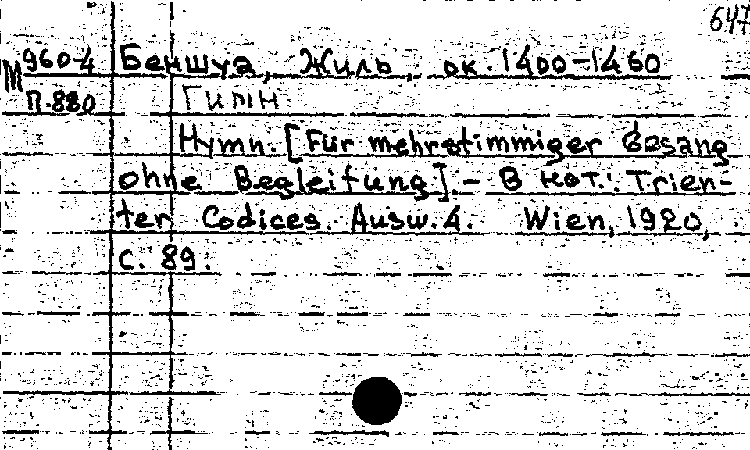 647
М 960-4 Беншуа, Жиль, ок. 1400-1460
П-880 Гимн.
Hymn. [Für mehrstimmiger Gesang
ohne Begleitung]. - В нот.: Trien-
ter Codices. Ausw. 4. Wien, 1920,
с. 89.